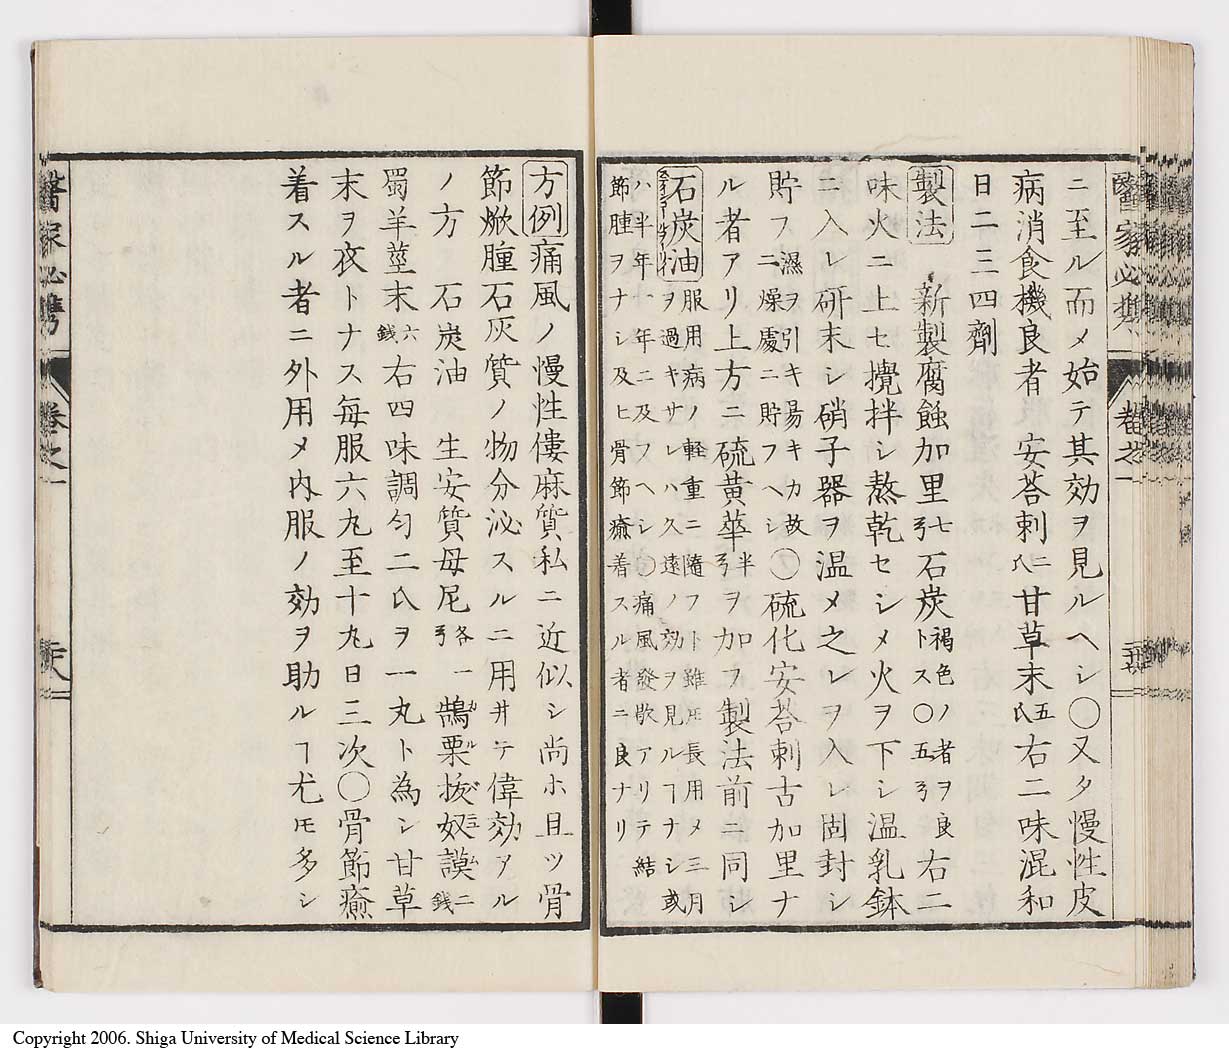 醫家必携 卷之一
ニ至ル而メ始テ其効ヲ見ルヘシ〇又タ慢性皮
病消食機良者 安荅刺二氏甘草末五氏右二味混和
日二三四劑
製法 新製腐蝕加里七弓石炭褐色ノ者ヲ良トス〇五弓右二
味火ニ上セ攪拌シ熬乾セシメ火ヲ下シ温乳鉢
ニ入レ研末シ硝子器ヲ温メ之レヲ入レ固封シ
貯フ濕ヲ引キ易キカ故ニ燥處ニ貯フヘシ〇硫化安荅刺古加里ナ
ル者アリ上方ニ硫黄華半弓ヲ加フ製法前ニ同シ
石炭油服用病ノ軽重ニ隨フト雖𪜈長用メ三月
ヲ過キサレハ久遠ノ効ヲ見ルヿナシ或
ハ半年一年ニ及フヘシ〇痛風發歇アリテ結
節腫ヲナシ及ヒ骨節癒着スル者ニ良ナリ
方例痛風ノ慢性僂麻質私ニ近似シ尚ホ且ツ骨
節焮腫石灰質ノ物分泌スルニ用井テ偉効アル
ノ方 石炭油 生安質母尼各一弓 鵠栗抜奴謨二錢
蜀羊莖末六錢右四味調匀二氏ヲ一丸ト為シ甘草
末ヲ衣トナス毎服六丸至十丸日三次〇骨節癒
着スル者ニ外用メ内服ノ効ヲ助ルヿ尤モ多シ
醫家必携 卷之一